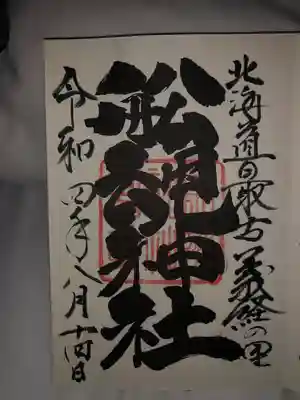 北海道最古義経の里
船魂神社
令和四年八月十四日